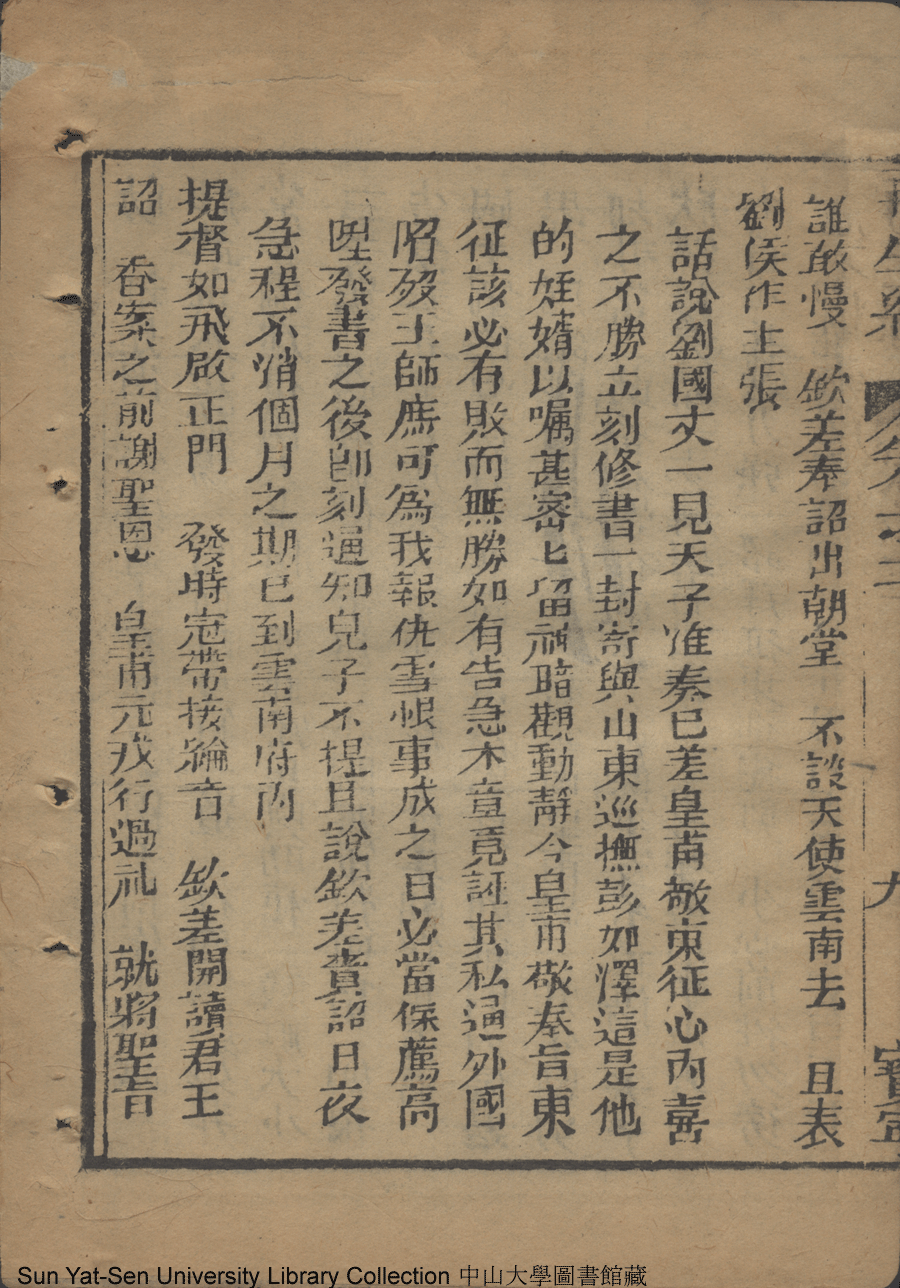 誰敢慢　欽差奉詔出朝堂　不談天使雲南去　且表
劉侯作主張
話說劉國丈一見天子准奏已差皇甫敬東征心內喜
之不勝立刻修書一封寄與山東巡撫彭如澤這是他
的姪婿以嘱甚密匕留神暗觀動靜今皇甫敬奉旨東
征該必有敗而無勝如有告急木章竟誣其私通外國
昭殁王師庶可為我報仇雪恨事成之日必當保薦高
陞發書之後即刻通知兒子不提且說欽差賫詔日夜
急程不消個月之期已到雲南府內
提督如飛啟正門　發時冠帶接綸音　欽差開讀君王
詔　香案之前謝聖恩　皇甫元戎行過礼　就將聖旨
九
Sun Yat-Sen University Library Collection 中山大學圖書館藏